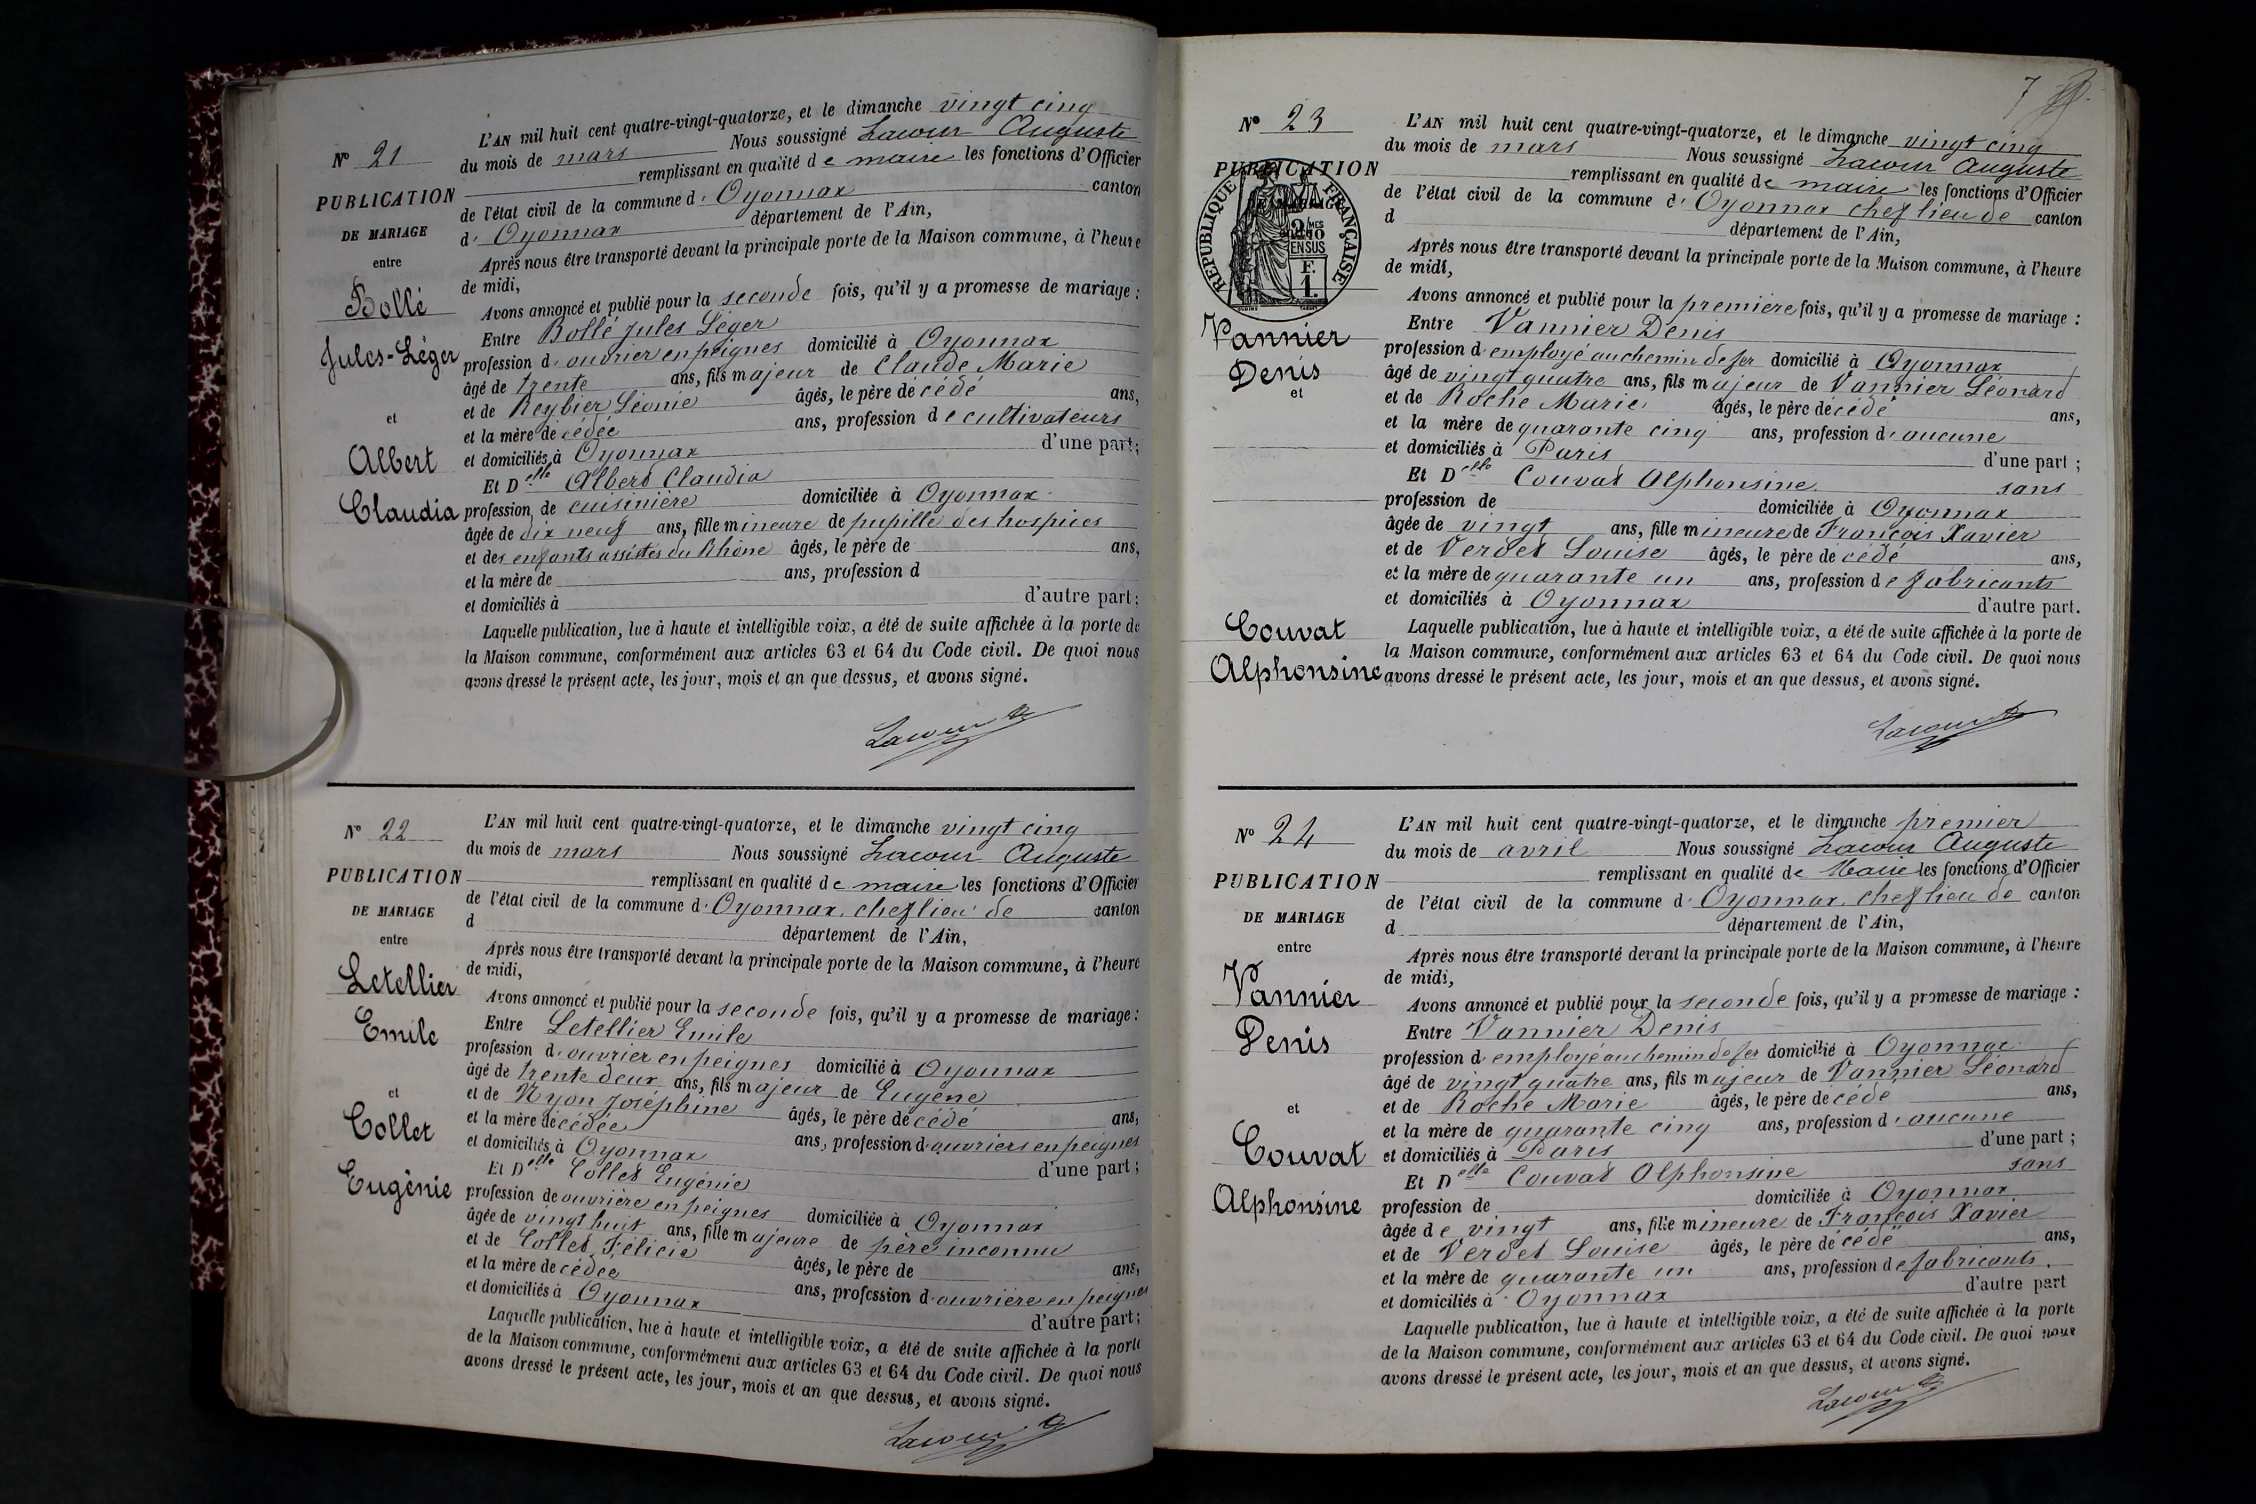 L'AN mil huit cent quatre-vingt-quatorze, et le dimanche vingt cinq
N° 21
du mois de mars Nous soussigné Lacour Auguste
remplissant en qualité de maire les fonctions d'Officier
PUBLICATION
de l'état civil de la commune d'Oyonnax canton
DE MARIAGE
d'Oyonnax département de l'Ain,
entre
Après nous être transporté devant la principale porte de la Maison commune, à l'heure
de midi,
Bollé
Avons annoncé et publié pour la seconde fois, qu'il y a promesse de mariage :
Entre Bollé Jules Léger
Jules-Léger
profession d'ouvrier en peignes domicilié à Oyonnax
âgé de trente ans, fils majeur de Claude Marie
et de Reybier Léonie âgés, le père décédé ans,
et
et la mère décédée ans, profession de cultivateurs
Albert
et domiciliés à Oyonnax d'une part;
Et Delle Albert Claudia
Claudia
profession de cuisinière domiciliée à Oyonnax
âgée de dix neuf ans, fille mineure de pupille des hospices
et des enfants assistés du Rhône âgés, le père de ans,
et la mère de ans, profession d
et domiciliés à d'autre part;
Laquelle publication, lue à haute et intelligible voix, a été de suite affichée à la porte de
la Maison commune, conformément aux articles 63 et 64 du Code civil. De quoi nous
avons dressé le présent acte, les jour, mois et an que dessus, et avons signé.
Lacour A
L'AN mil huit cent quatre-vingt-quatorze, et le dimanche vingt cinq
N° 22
du mois de mars Nous soussigné Lacour Auguste
PUBLICATION
remplissant en qualité de maire les fonctions d'Officier
de l'état civil de la commune d'Oyonnax, chef lieu de canton
DE MARIAGE
d département de l'Ain,
entre
Après nous être transporté devant la principale porte de la Maison commune, à l'heure
de midi,
Letellier
Avons annoncé et publié pour la seconde fois, qu'il y a promesse de mariage :
Emile
Entre Letellier Emile
profession d'ouvrier en peignes domicilié à Oyonnax
âgé de trente deux ans, fils majeur de Eugène
et
et de Nyon Joséphine âgés, le père décédé ans,
Collet
et la mère décédée ans, profession d'ouvriers en peignes
et domiciliés à Oyonnax d'une part;
Et Delle Collet Eugénie
Eugénie
profession de ouvrière en peignes domiciliée à Oyonnax
âgée de vingt huit ans, fille majeure de père inconnu
et de Collet Félicie âgés, le père de ans,
et la mère décédée ans, profession d'ouvrière en peignes
et domiciliés à Oyonnax d'autre part;
Laquelle publication, lue à haute et intelligible voix, a été de suite affichée à la porte
de la Maison commune, conformément aux articles 63 et 64 du Code civil. De quoi nous
avons dressé le présent acte, les jour, mois et an que dessus, et avons signé.
Lacour A
7
L'AN mil huit cent quatre-vingt-quatorze, et le dimanche vingt cinq
N° 23
du mois de mars Nous soussigné Lacour Auguste
PUBLICATION
remplissant en qualité de maire les fonctions d'Officier
RÉPUBLIQUE FRANÇAISE
2/10MES
EN SUS
F.
1.
de l'état civil de la commune d'Oyonnax chef lieu de canton
d département de l'Ain,
Après nous être transporté devant la principale porte de la Maison commune, à l'heure
de midi,
Avons annoncé et publié pour la première fois, qu'il y a promesse de mariage :
Vannier
Entre Vannier Denis
profession d'employé au chemin de fer domicilié à Oyonnax
Denis
âgé de vingt quatre ans, fils majeur de Vannier Léonard
et
et de Roche Marie âgés, le père décédé ans,
et la mère de quarante cinq ans, profession d'aucune
et domiciliés à Paris d'une part ;
Et Delle Couvat Alphonsine sans
profession de domiciliée à Oyonnax
âgée de vingt ans, fille mineure de François Xavier
et de Verdet Louise âgés, le père décédé ans,
et la mère de quarante un ans, profession de fabricants
et domiciliés à Oyonnax d'autre part.
Couvat
Laquelle publication, lue à haute et intelligible voix, a été de suite affichée à la porte de
Alphonsine
la Maison commune, conformément aux articles 63 et 64 du Code civil. De quoi nous
avons dressé le présent acte, les jour, mois et an que dessus, et avons signé.
Lacour A
L'AN mil huit cent quatre-vingt-quatorze, et le dimanche premier
N° 24
du mois de avril Nous soussigné Lacour Auguste
PUBLICATION
remplissant en qualité de Maire les fonctions d'Officier
de l'état civil de la commune d'Oyonnax, chef lieu de canton
DE MARIAGE
d département de l'Ain,
entre
Après nous être transporté devant la principale porte de la Maison commune, à l'heure
de midi,
Vannier
Avons annoncé et publié pour la seconde fois, qu'il y a promesse de mariage :
Denis
Entre Vannier Denis
profession d'employé au chemin de fer domicilié à Oyonnax
âgé de vingt quatre ans, fils majeur de Vannier Léonard
et
et de Roche Marie âgés, le père décédé ans,
et la mère de quarante cinq ans, profession d'aucune
Couvat
et domiciliés à Paris d'une part ;
Et Delle Couvat Alphonsine sans
Alphonsine
profession de domiciliée à Oyonnax
âgée de vingt ans, fille mineure de François Xavier
et de Verdet Louise âgés, le père décédé ans,
et la mère de quarante un ans, profession de fabricants.
et domiciliés à Oyonnax d'autre part
Laquelle publication, lue à haute et intelligible voix, a été de suite affichée à la porte
de la Maison commune, conformément aux articles 63 et 64 du Code civil. De quoi nous
avons dressé le présent acte, les jour, mois et an que dessus, et avons signé.
Lacour A